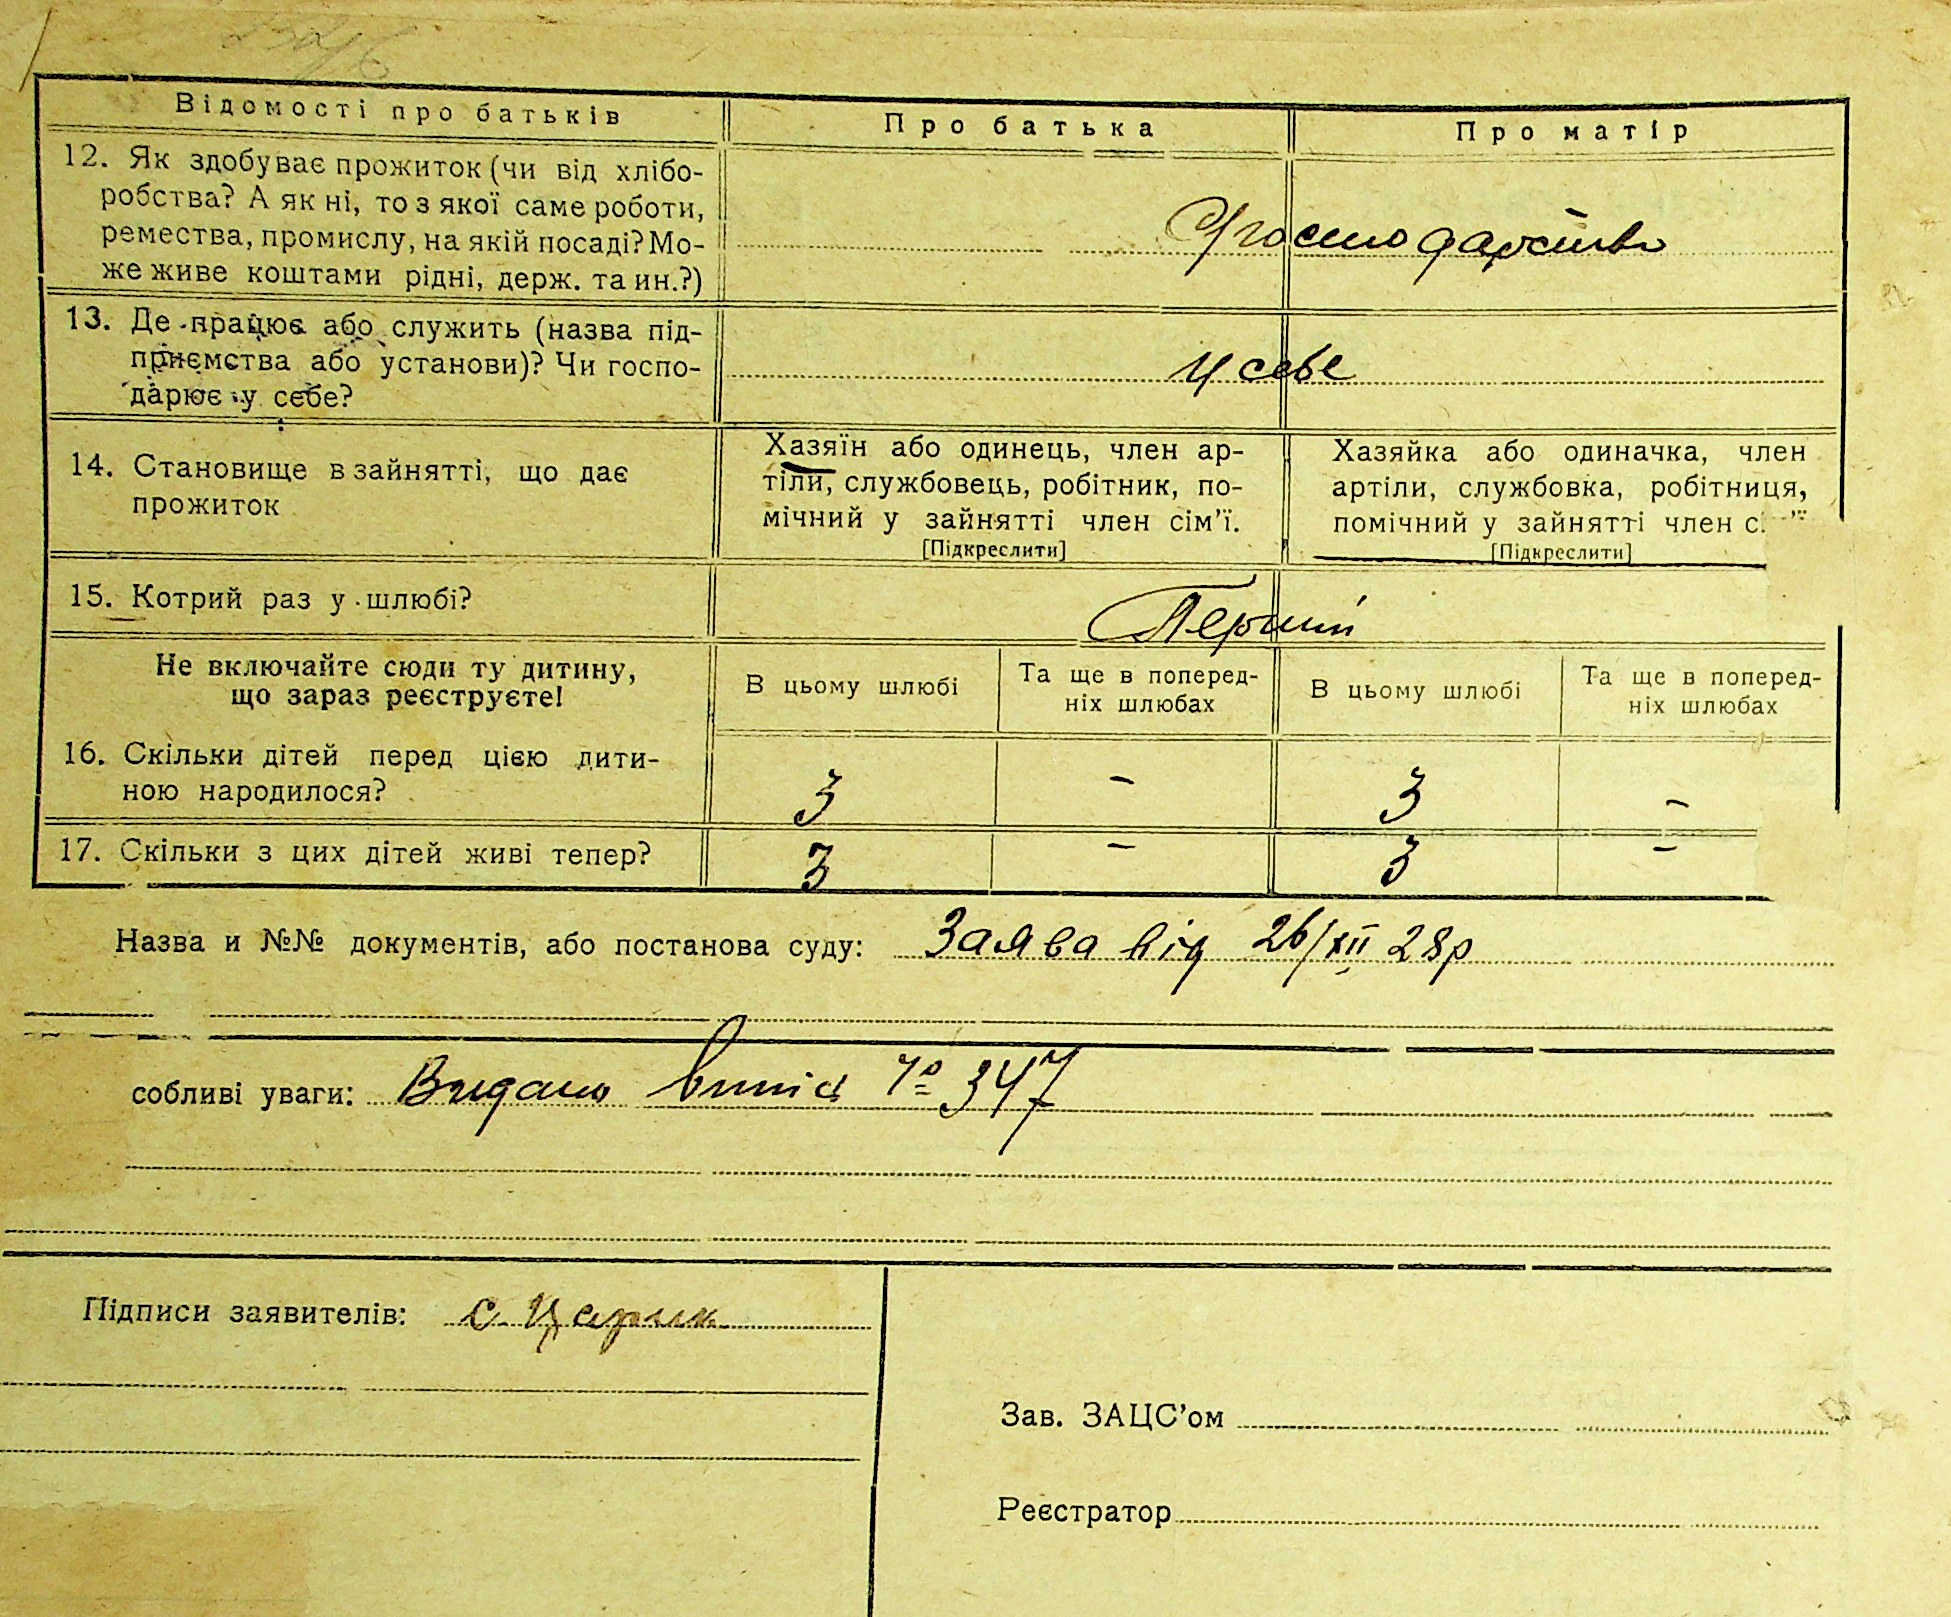 Відомості про батьків
Про батька
Про матір
12. Як здобуває прожиток (чи від хлібо-
робства? А як ні, то з якої саме роботи,
ремества, промислу, на якій посаді? Мо-
же живе коштами рідні, держ. та ин.?)
господарство
13. Де працює або служить (назва під-
приємства або установи)? Чи госпо-
дарює у себе?
у себе
14. Становище в зайнятті, що дає
прожиток
Хазяїн або одинець, член ар-
тіли, службовець, робітник, по-
мічний у зайнятті член сім'ї.
[Підкреслити]
Хазяйка або одиначка, член
артіли, службовка, робітниця,
помічний у зайнятті член с
[Підкреслити]
15. Котрий раз у шлюбі?
Перший
Не включайте сюди ту дитину,
що зараз реєструєте!
В цьому шлюбі
Та ще в поперед-
ніх шлюбах
В цьому шлюбі
Та ще в поперед-
ніх шлюбах
16. Скільки дітей перед цією дити-
ною народилося?
3 – 3 –
17. Скільки з цих дітей живі тепер?
3 – 3 –
Назва и №№ документів, або постанова суду: Заява від 26/XII 28р
собливі уваги: Видано випис № 347
Підписи заявителів: С. Царик
Зав. ЗАЦС'ом
Реєстратор